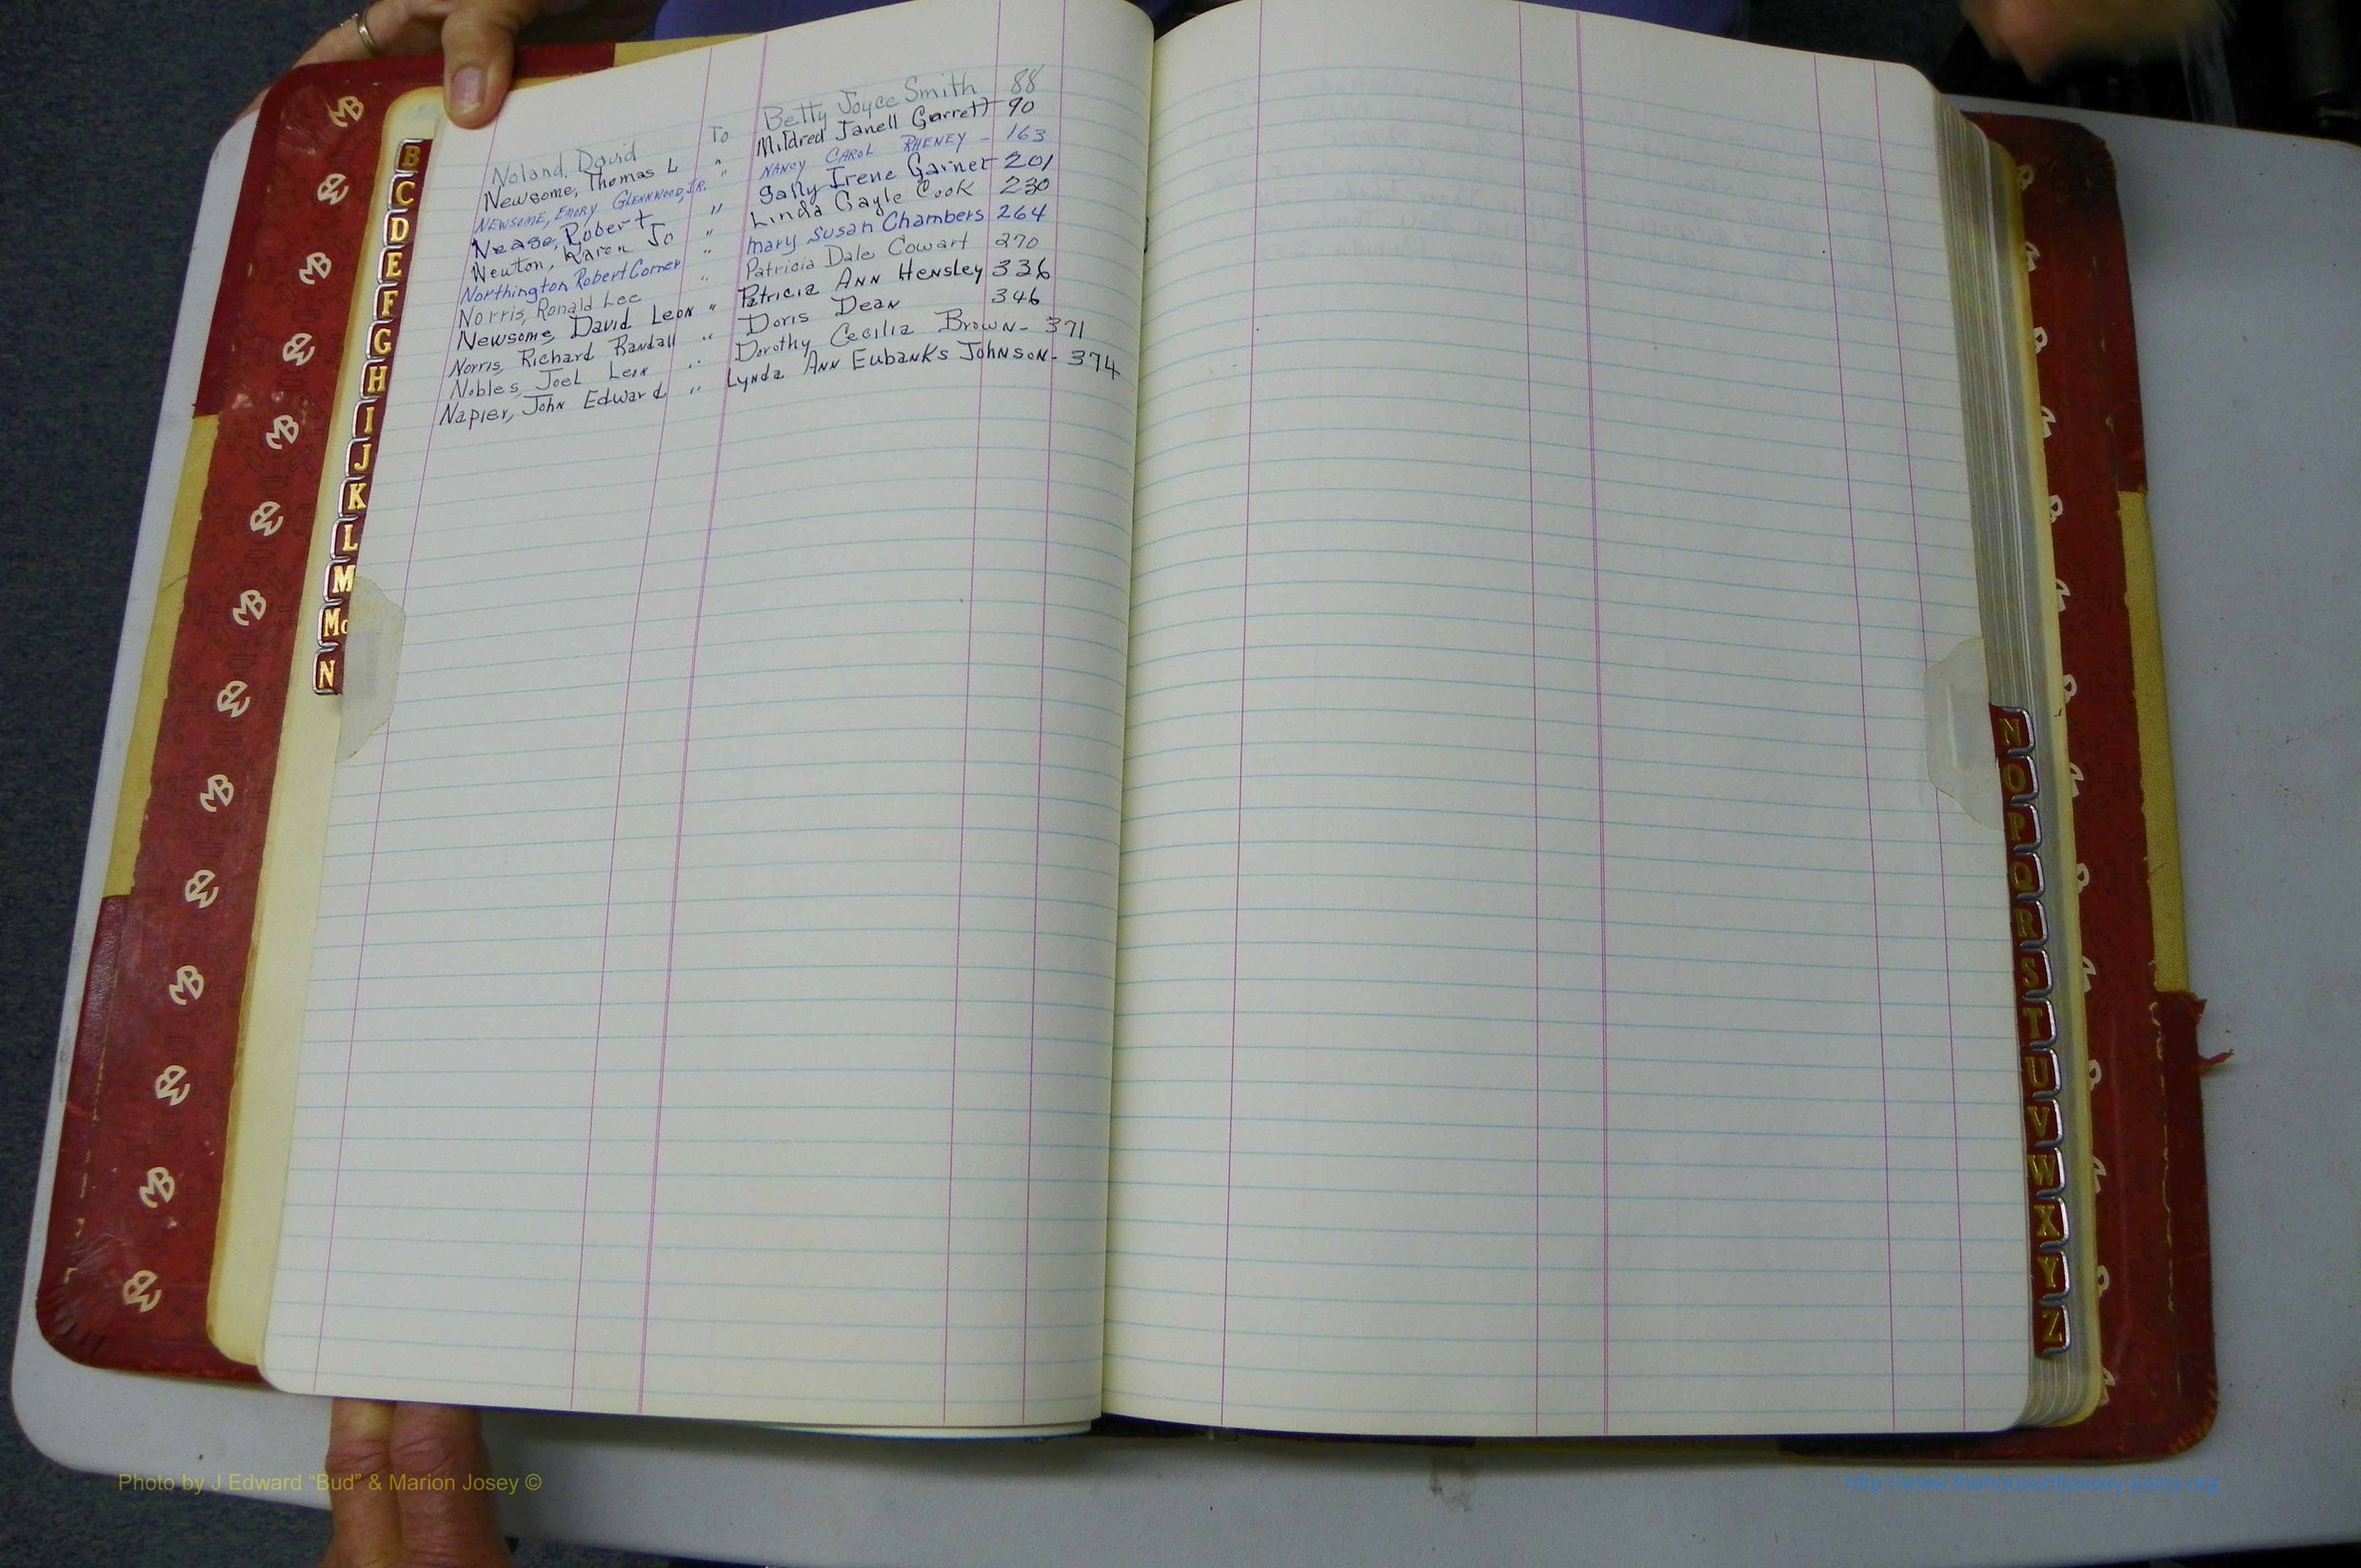 Noland, David To Betty Joyce Smith 88
Newsome, Thomas L " Mildred Janell Garrett 90
NEWSOME, EMORY GLENNWOOD, JR. " NANCY CAROL RHENEY - 163
Nease, Robert " Sally Irene Garnet 201
Newton, Karen Jo " Linda Gayle Cook 230
Northington Robert Comer " Mary Susan Chambers 264
Norris, Ronald Lee " Patricia Dale Cowart 270
Newsome, David Leon " Patricia Ann Hensley 336
Norris, Richard Randall " Doris Dean 346
Nobles, Joel Leon " Dorothy Cecilia Brown - 371
Napier, John Edward " Lynda Ann Eubanks Johnson - 374
B
C
D
E
F
G
H
I
J
K
L
M
Mc
N
N
O
P
Q
R
S
T
U
V
W
X
Y
Z
Photo by J Edward “Bud” & Marion Josey ©